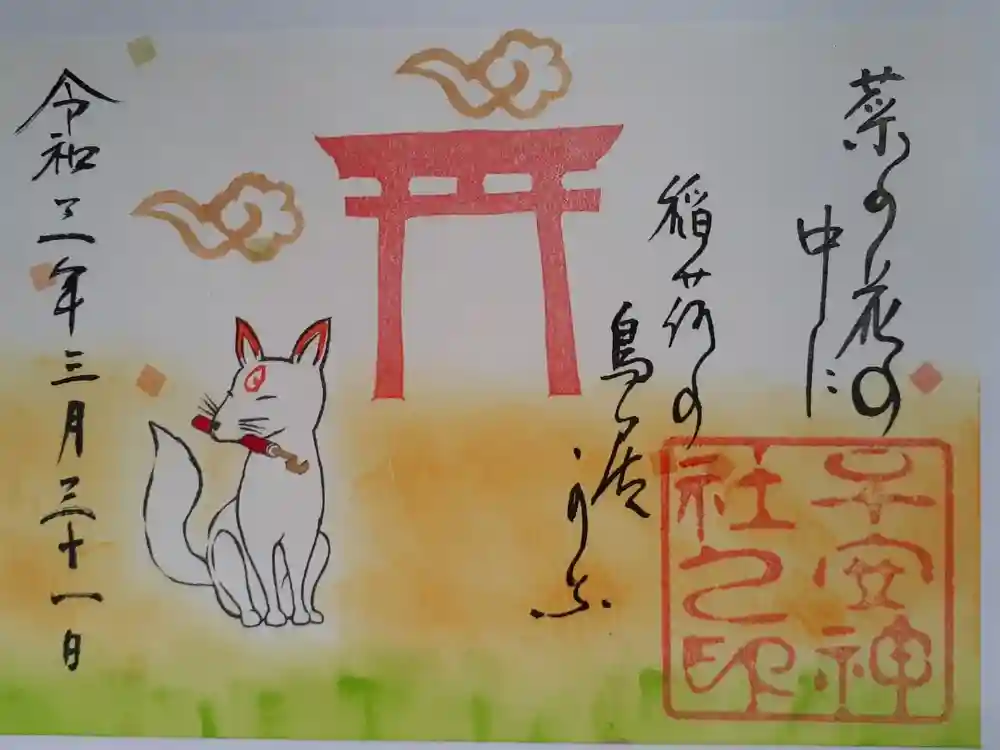 菜の花の
中に
稲荷の
鳥居
子安神
社之印
令和三年三月三十一日